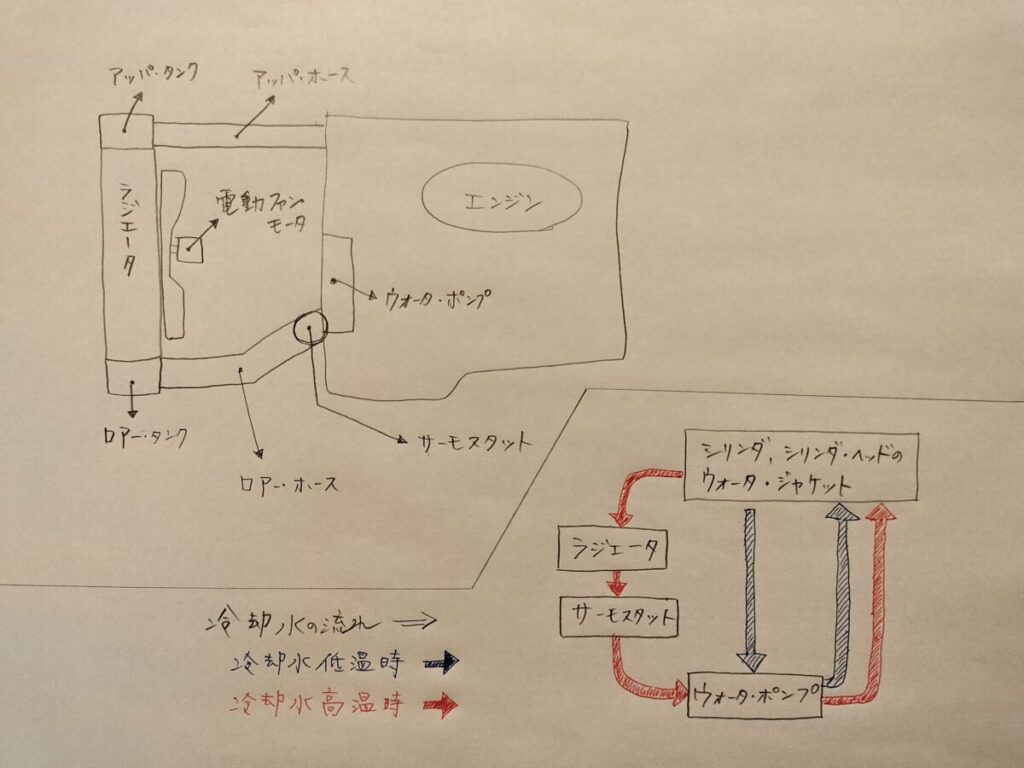 アッパ・タンク
アッパ・ホース
ラジエータ
電動ファン
モータ
エンジン
ウォータ・ポンプ
ロアー・タンク
ロアー・ホース
サーモスタット
シリンダ、シリンダ・ヘッドの
ウォータ・ジャケット
ラジエータ
サーモスタット
ウォータ・ポンプ
冷却水の流れ ⇒
冷却水低温時
冷却水高温時